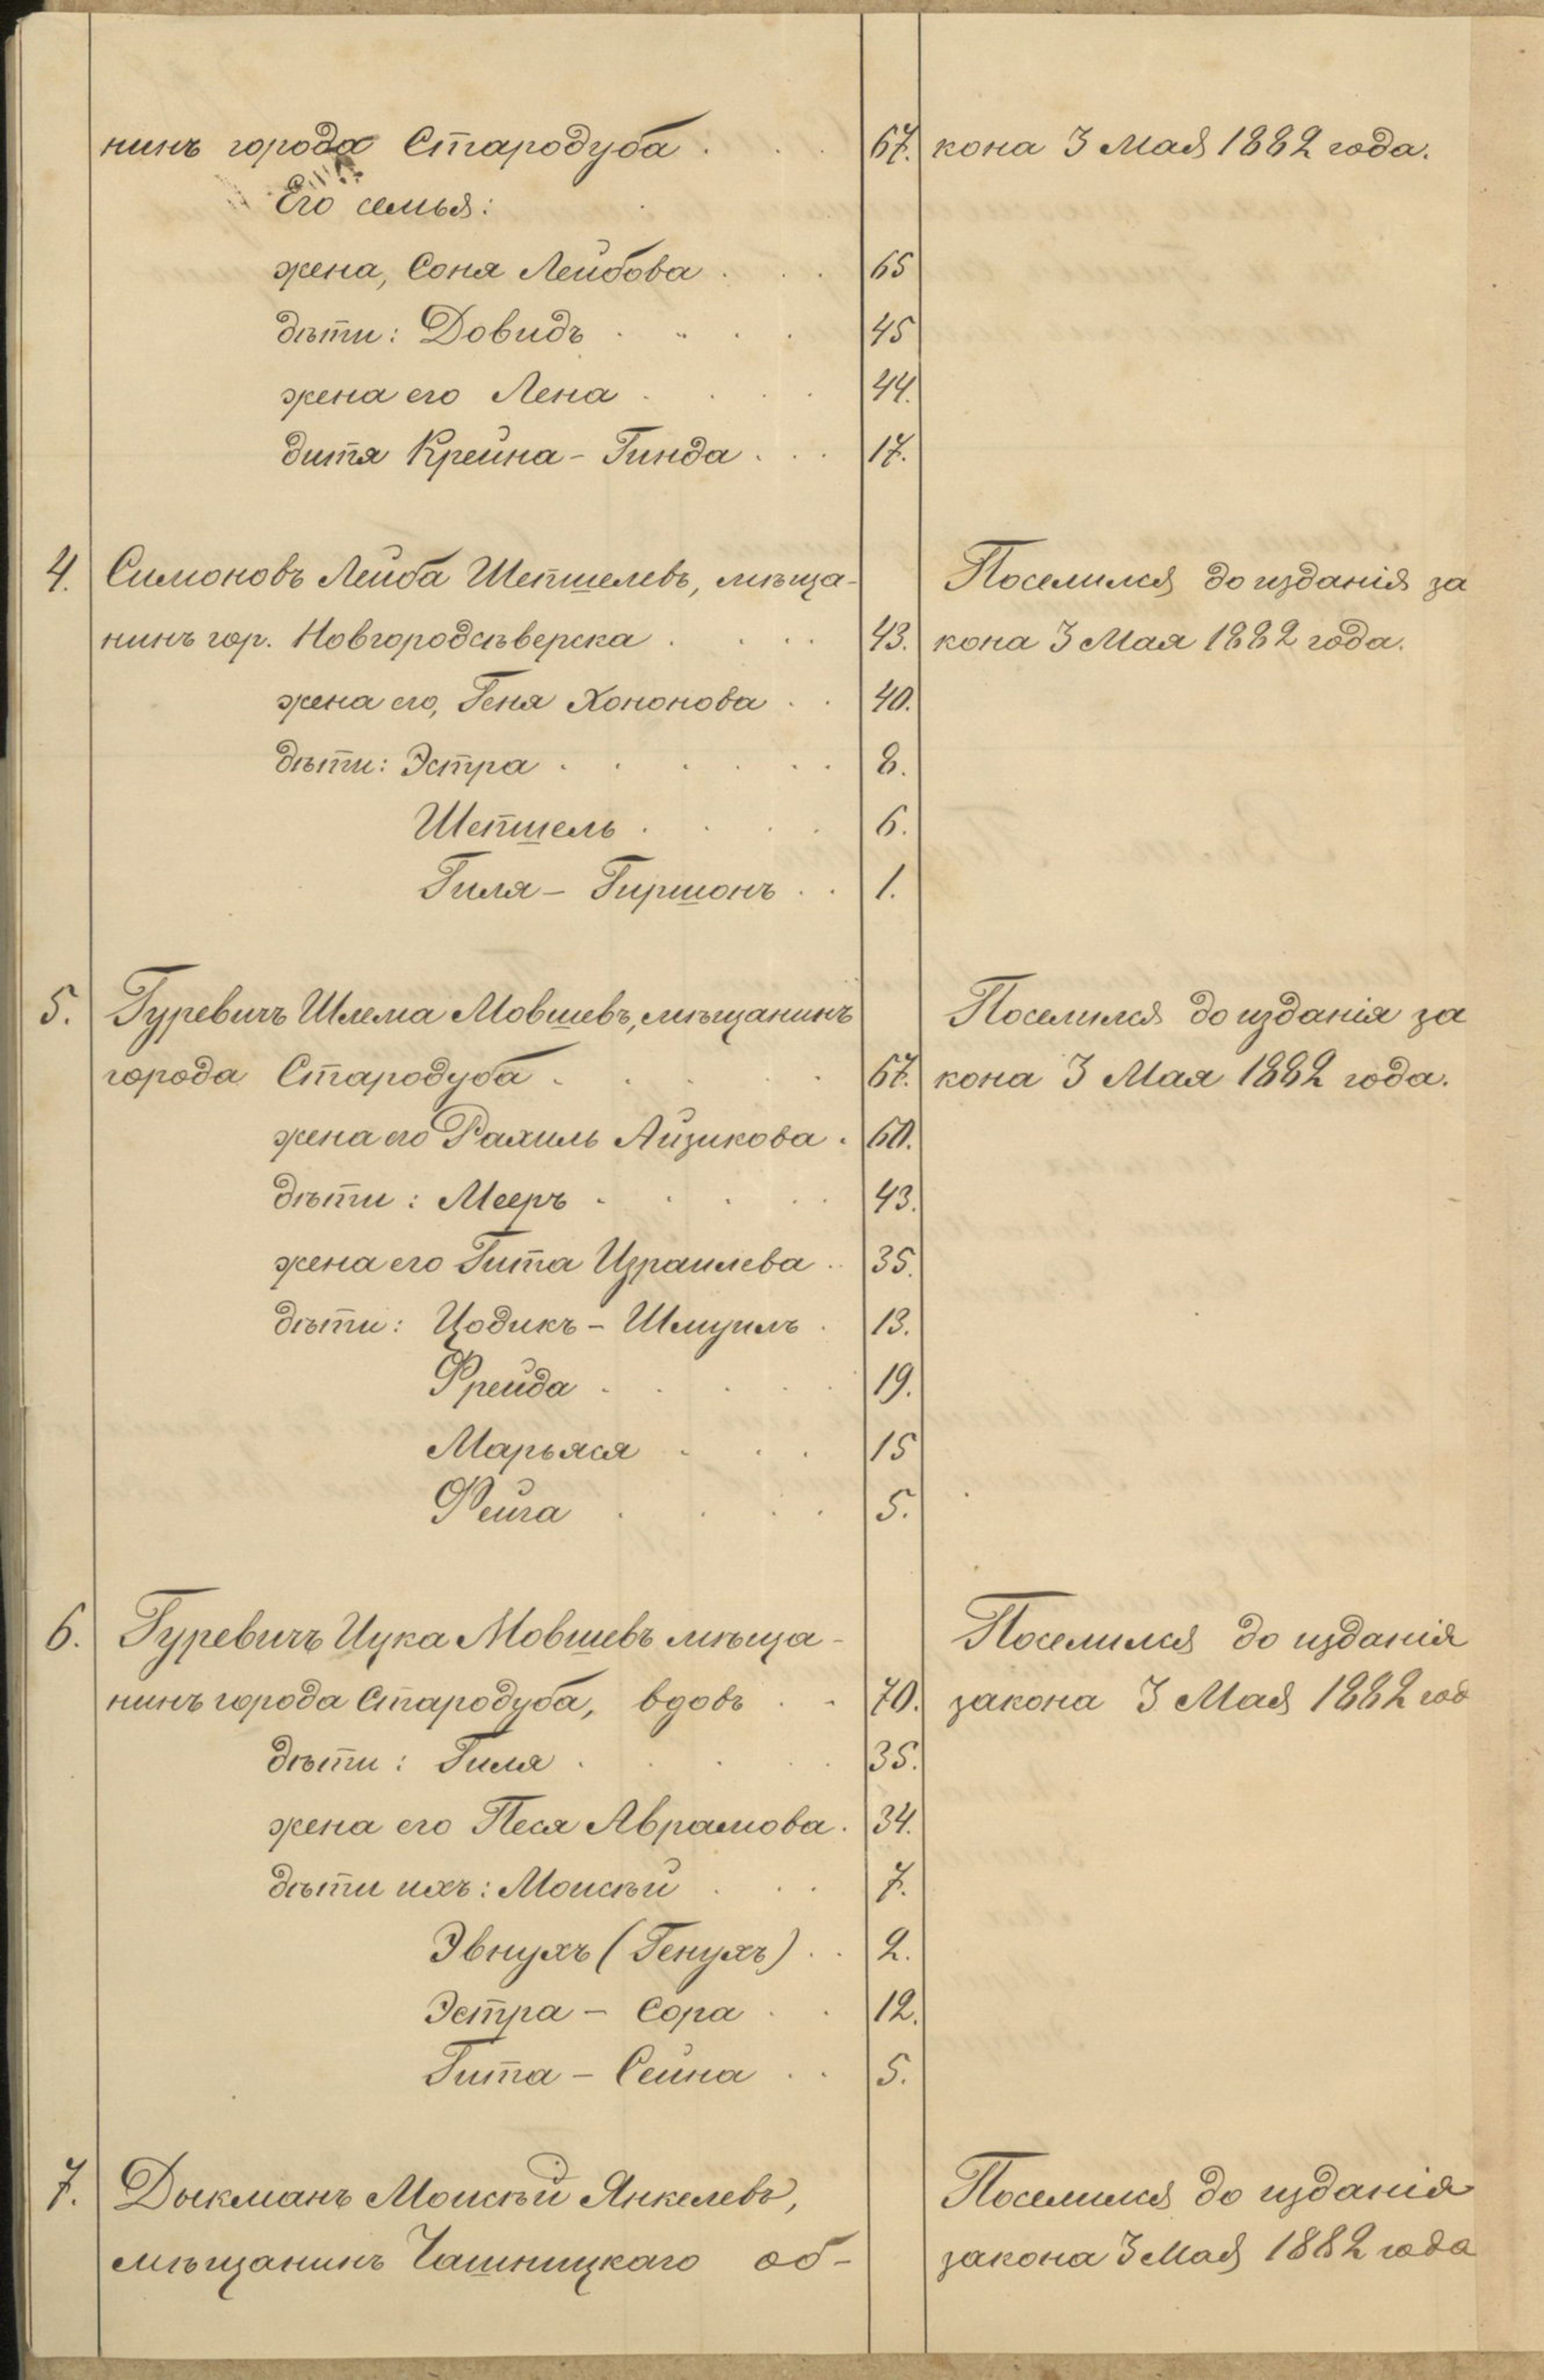 нинъ города Стародуба . . . 67. кона 3 Мая 1882 года.
Его семья:
жена, Соня Лейбова . . . 65
дѣти: Довидъ . . . . 45
жена его Лена . . . . 44.
дитя Крейна - Гинда . . . 17.
4. Симоновъ Лейба Шепшелевъ, мѣща- Поселился до изданія за
нинъ гор. Новгородсѣверска . . . . 43. кона 3 Мая 1882 года.
жена его, Геня Хононова . . 40.
дѣти: Эстра . . . . . . 8.
Шепшель . . . . 6.
Гиля - Гиршонъ . . 1.
5. Гуревичъ Шлема Мовшевъ, мѣщанинъ Поселился до изданія за
города Стародуба . . . . . 67. кона 3 Мая 1882 года.
жена его Рахиль Айзикова . 60.
дѣти: Мееръ . . . . . 43.
жена его Гита Израилева . . 35.
дѣти: Цодикъ - Шмуилъ . 13.
Фрейда . . . . . 19.
Марьяся . . . 15
Фейга . . . . 5.
6. Гуревичъ Ицка Мовшевъ мѣща- Поселился до изданія
нинъ города Стародуба, вдовъ . . 70. закона 3 Мая 1882 год
дѣти: Гиля . . . . . 35.
жена его Песя Аврамова . 34.
дѣти ихъ: Моисѣй . . . 7.
Эвнухъ (Генухъ) . . 2.
Эстра - Сора . . 12.
Гита - Сейна . . 5.
7. Дыкманъ Моисѣй Янкелевъ, Поселился до изданія
мѣщанинъ Чашницкаго об- закона 3 Мая 1882 года